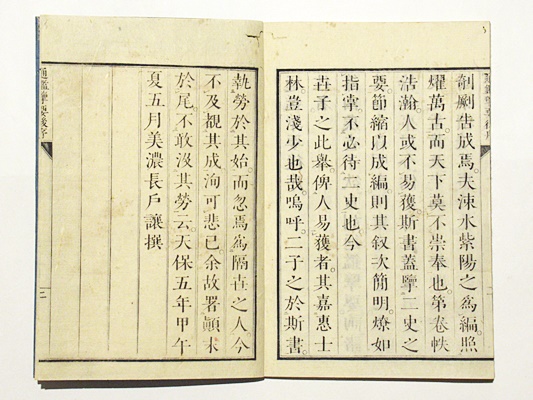 剞劂告成焉。夫涑水紫陽之爲編照
耀萬古。而天下莫不崇奉也。第卷帙
浩瀚人或不易獲斯書蓋擥二史之
要。節縮以成編則其叙次簡明。燎如
指掌不必待二史也今
卋子之此舉。俾人易獲者。其嘉惠士
林豈淺少也哉。嗚呼。二子之於斯書。
執勞於其始。而忽焉爲隔卋之人今
不及覩其成洵可悲已余故署顛末
於尾不敢沒其勞云。天保五年甲午
夏五月美濃長戶讓撰
通鑑擥要後序
二